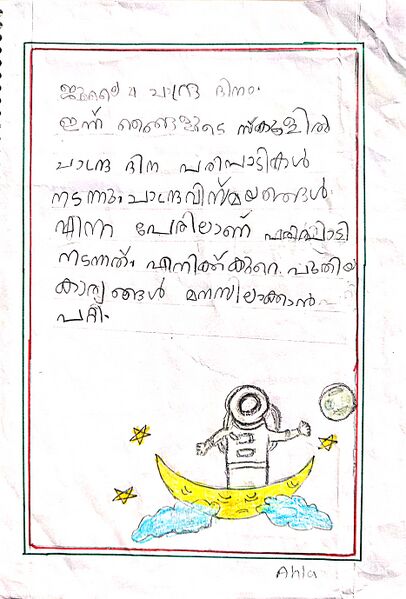 ജൂലൈ 4 ചാന്ദ്ര ദിനം.
ഇന്ന് ഞങ്ങളുടെ സ്കൂളിൽ
ചാന്ദ്ര ദിന പരിപാടികൾ
നടന്നു. ചാന്ദ്രവിസ്മയങ്ങൾ
എന്ന പേരിലാണ് പരിപ്പാടി
നടന്നത്. എനിക്ക് കുറെ പുതിയ
കാര്യങ്ങൾ മനസിലാക്കാൻ
പറ്റി.
Ahla